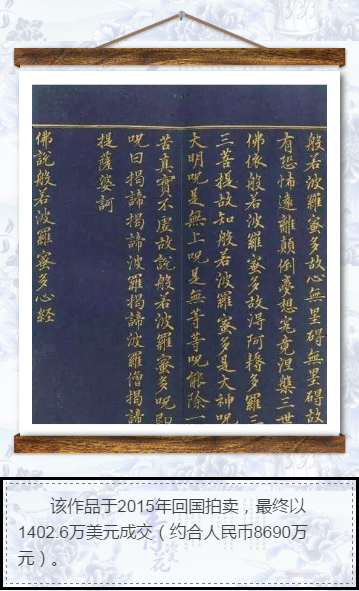 般若波羅蜜多故心無罣碍無罣碍故
有恐怖遠離顛倒夢想究竟涅槃三世
佛依般若波羅蜜多故得阿耨多羅三
三菩提故知般若波羅蜜多是大神呪
大明呪是無上呪是無等等呪能除一
苦真實不虛故說般若波羅蜜多呪即
呪曰揭諦揭諦波羅揭諦波羅僧揭諦
提薩婆訶
佛說般若波羅蜜多心經
该作品于2015年回国拍卖，最终以
1402.6万美元成交（约合人民币8690万
元）。